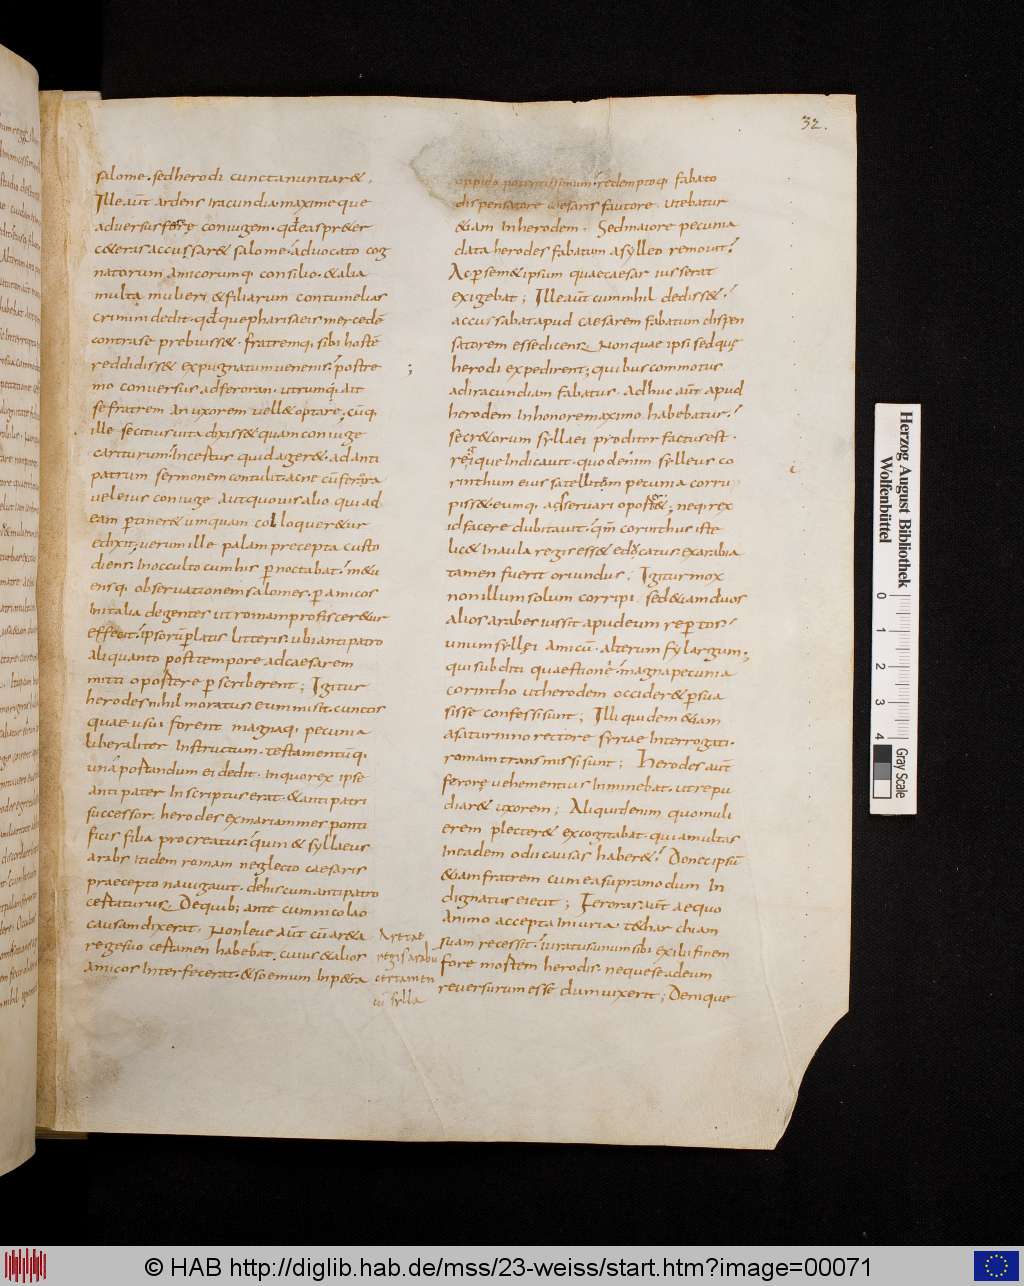 32.
salome. sed herodi cuncta nuntiar&.
Ille aut̄ ardens iracundia maxime que
adversus ferorę coniugem. qđ ea spr&er
accussar& salome; advocato cog
natorum amicorumq; consilio. & alia
multa mulieri & filiarum contumelias
crimini dedit. qđque pharisaeis mercedē
contra se prebuiss&. fratremq; sibi hostē
reddidiss& expugnatum venenis. postre
mo conversus ad feroran. utrumq; ait
se fratrem an uxorem vell& optare; cūq;
ille secius vita dixiss& quam coniuge
cariturum. Incestus quid ager&. ad anti
patrum sermonem contulit. acne cū ferora
vel eius coniuge aut quovis alio qui ad
eam ptiner& umquam colloquer&ur
edixit; verum ille palam precepta custo
diens. In occulto cum his pnoctabat. m&u
ensq; observationem salomes. p amicos
In italia degentes ut romam profiscer&ur
effecit. ipsorū platis litteris. ubi antipatro
aliquanto post tempore ad caesarem
mitti oportere pscriberent; Igitur
herodes nihil moratus eum misit. cunctis
quae usui forent magnaq; pecunia
liberaliter Instructum. testamentūq;
unā portandum ei dedit. In quo rex ipse
antipater Inscriptus erat. & antipatri
successor. herodes ex mariammes ponti
ficis filia procreatus. & syllaeus
arabs itidem romam neglecto caesaris
praecepto navigavit. dehis cum antipatro
cestaturus. De quib; ante cum nicolao
causam dixerat. Non leve aut̄ cū ar&a
rege suo cestamen habebat. cuius & alios
amicos Interfecerat. & soemum In p&ra
Aretae
regis arabu
certamen
cū sylla
oppido potentissimum; redemptoq; fabato
dispensatore caesaris fautore utebatur
&iam In herodem. Sed maiore pecunia
data herodes fabatum a sylleo removit.
Ac p sem&ipsum quae caesar iusserat
exigebat; Ille aut̄ cum nihil dediss&.
accussabat apud caesarem fabatum dispen
satorem esse dicens. Non quae ipsi sed quę
herodi expedirent; quibus commotus
ad iracundiam fabatus. Adhuc aut̄ apud
herodem In honore maximo habebatur.
secr&orum syllaei proditor factus est.
regique Indicavit. quod enim sylleus co
rinthum eius satellitem pecunia corru
piss& eumq; adservari oport&; neq; rex
id facere dubitavit. qm̄ corinthus iste
lic& In aula regis ess& educatus ex arabia
tamen fuerit oriundus; Igitur mox
non illum solum corripi sed &iam duos
alios arabes iussit apud eum reptos.
unum syllęi amicū. alterum fylargum;
qui subditi quaestione. magna pecunia
corintho ut herodem occider& psua
sisse confessi sunt; Illi quidem &iam
a saturnino rectore syriae Interrogati.
romam transmissi sunt; Herodes aut̄
ferorę vehementius Inminebat. ut repu
diar& uxorem; Aliquid enim quo muli
erem plecter& excogitabat. qui a multas
In eadem odii causas haber&. Donec ipsū
&iam fratrem cum ea supra modum In
dignatus eiecit; Feroras aut̄ aequo
animo accepta Iniuria. t&harchiam
suam recessit. iuratus unum sibi exilii finem
fore mortem herodis. neque se ad eum
reversurum esse dum vixerit; Denique
Herzog August Bibliothek
Wolfenbüttel
0
1
2
3
4
Gray Scale
© HAB http://diglib.hab.de/mss/23-weiss/start.htm?image=00071